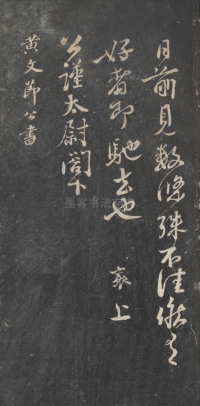 日前見數條殊不佳候有
好者即馳去也 襄上
公謹太尉閤下
黄文節公書
墨客书法